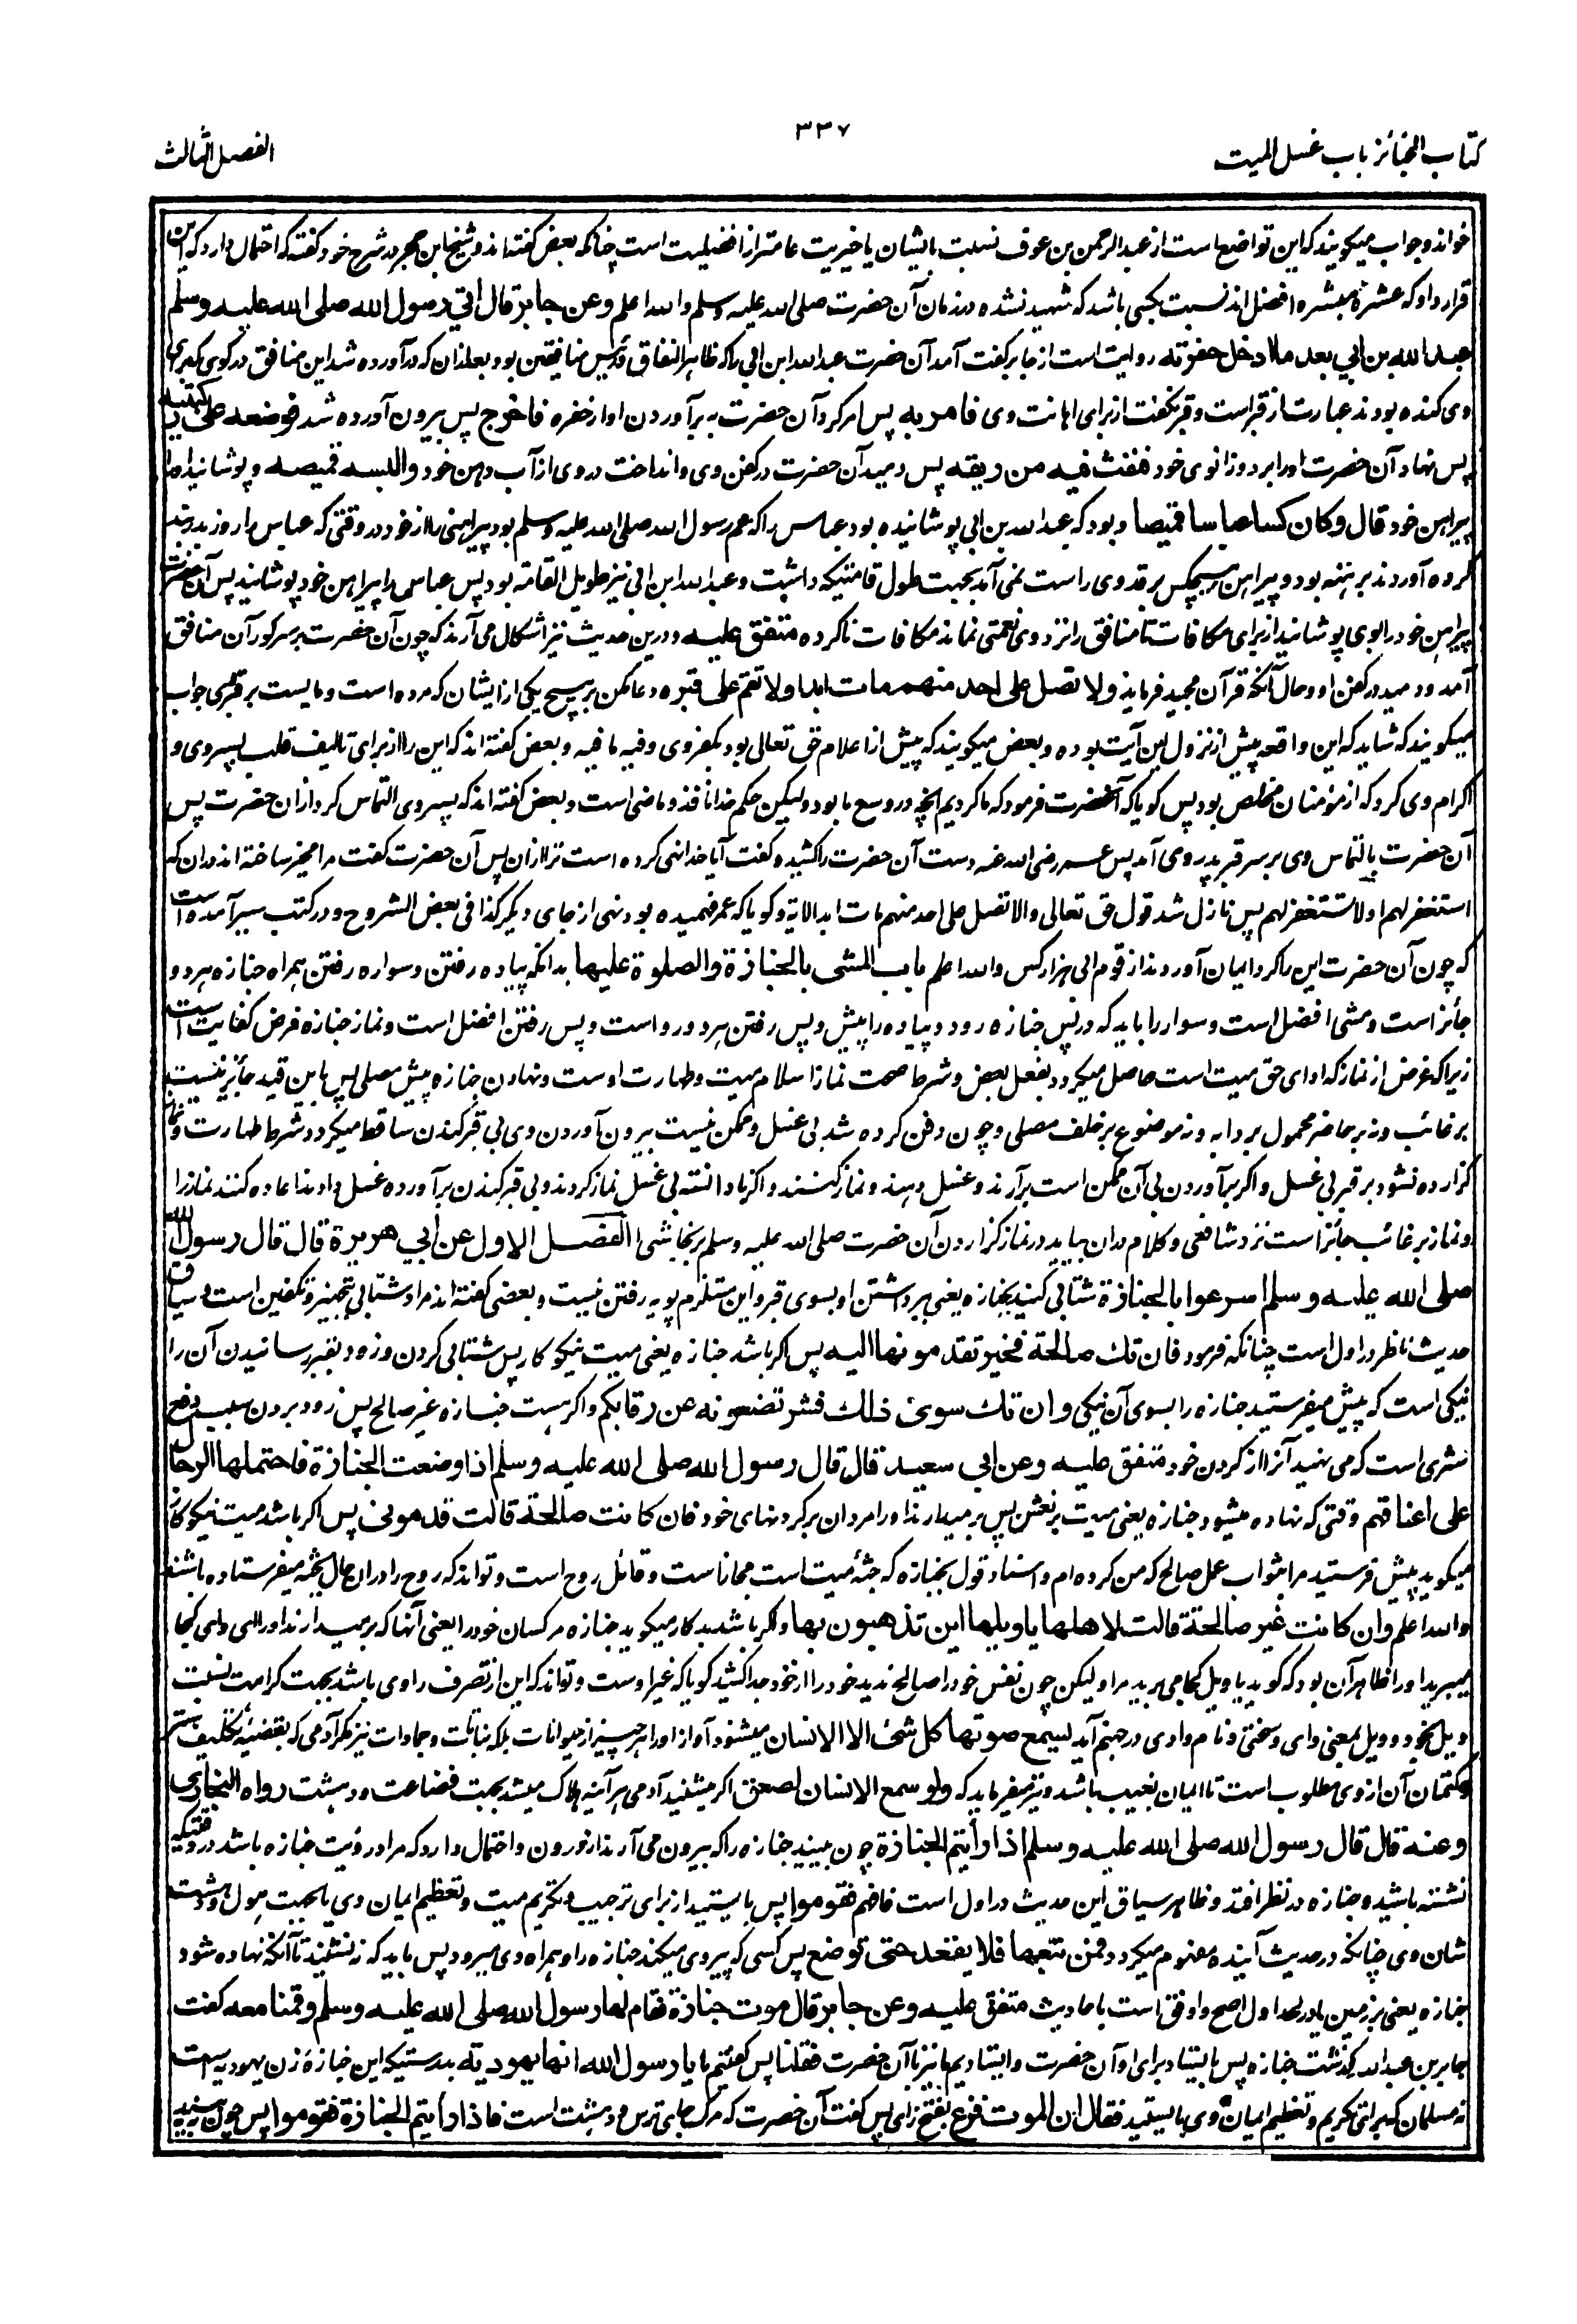 کتاب الجنائز باب غسل المیت
۳۳۷
الفصل الثالث
خواند و جواب میگویند که این تواضع است از عبدالرحمن بن عوف نسبت بایشان یا خیریت عامتر از افضلیت است چنانکه بعض گفته اند و شیخ ابن حجر در شرح خود گفته که احتمال دارد که این
قرار داد که عشرۀ مبشره افضل اند نسبت بکسی باشد که شهید نشده در زمان آن حضرت صلی الله علیه وسلم والله اعلم وعن جابر قال اتي رسول الله صلى الله عليه وسلم
عبد الله بن ابي بعد ما ادخل حفرته روایت است از جابر گفت آمد آن حضرت عبدالله ابن ابی را که ظاهر النفاق و رئیس منافقین بود بعد از ان که در آورده شد این منافق در گوی که برای
وی کنده بودند عبارت از قبر است و قبر نگفت از برای اهانت وی فامر به پس امر کرد آن حضرت به برآوردن او از حفره فاخرج پس بیرون آورده شد فوضعه على ركبتيه
پس نهاد آن حضرت اورا بر دو زانوی خود فنفث فيه من ريقه پس دمید آن حضرت در کفن وی و انداخت در وی از آب دهن خود والبسه قميصه و پوشانید او را
پیراهن خود قال وكان كسا عباسا قميصا و بود که عبدالله بن ابی پوشانیده بود عباس را که عم رسول الله صلی الله علیه وسلم بود پیراهنی را از خود در وقتی که عباس را روز بدر بند
کرده آوردند برهنه بود و پیراهن هیچکس بر قد وی راست نمی آمد بجهت طول قامتیکه داشت و عبدالله ابن ابی نیز طویل القامة بود پس عباس را پیراهن خود پوشانید پس آن حضرت
پیراهن خود را بوی پوشانید از برای مکافات تا منافق را نزد وی نعمتی نماند مکافات ناکرده متفق عليه و درین حدیث نیز اشکال می آرند که چون آن حضرت بر سر گور آن منافق
آمد و دمید در کفن او و حال آنکه قرآن مجید فرماید ولا تصل على احد منهم مات ابدا ولا تقم على قبره دعا مکن بر هیچ یکی از ایشان که مرده است و مایست بر قبر وی جواب
میگویند که شاید که این واقعه پیش از نزول این آیت بوده و بعض میگویند که پیش از اعلام حق تعالی بود بکفر وی و فیه ما فیه و بعض گفته اند که این را از برای تالیف قلب پسر وی و
اکرام وی کرد که از مؤمنان مخلص بود پس گویا که آنحضرت فرمود که ما کردیم آنچه در وسع ما بود ولیکن حکم خدا نافذ و ماضی است و بعض گفته اند که پسر وی التماس کرد از ان حضرت پس
آن حضرت بالتماس وی بر سر قبر پدر وی آمد پس عمر رضی الله عنه دست آن حضرت را کشید و گفت آیا خدا نهی نکرده است ترا از ان پس آن حضرت گفت مرا مخیر ساخته اند در ان که
استغفر لهم او لا تستغفر لهم پس نازل شد قول حق تعالی ولا تصل علی احد منهم مات ابدا الایة و گویا که عمر فهمیده بود نهی از جای دیگر کذا فی بعض الشروح و در کتب سیر آمده است
که چون آن حضرت این را کرد ایمان آوردند از قوم ابی هزار کس والله اعلم باب المشي بالجنازة والصلوة عليها بدانکه پیاده رفتن و سواره رفتن همراه جنازه هر دو
جائز است و مشی افضل است و سوار را باید که در پس جنازه رود و پیاده را پیش و پس رفتن هر دو رواست و پس رفتن افضل است و نماز جنازه فرض کفایت است
زیرا که غرض از نماز که ادای حق میت است حاصل میگردد بفعل بعض و شرط صحت نماز اسلام میت و طهارت اوست و نهادن جنازه پیش مصلی پس باین قید جائز نیست
بر غائب و نه بر حاضر محمول بر دابه و نه موضوع بر خلف مصلی و چون دفن کرده شد بی غسل و ممکن نیست بیرون آوردن وی بی قبر کندن ساقط میگردد شرط طهارت و نماز
گزارده شود بر قبر بی غسل و اگر برآوردن بی آن ممکن است برآرند و غسل دهند و نماز کنند و اگر نادانسته بی غسل نماز کردند و بی قبر کندن برآورده غسل دادند اعاده کنند نماز را
و نماز بر غائب جائز است نزد شافعی و کلام در ان بیاید در نماز گزاردن آن حضرت صلی الله علیه وسلم بر نجاشی الفصل الاول عن ابي هريرة قال قال رسول الله
صلى الله عليه وسلم اسرعوا بالجنازة شتابی کنید بجنازه یعنی ببرداشتن او بسوی قبر و این مستلزم پویه رفتن نیست و بعضی گفته اند مراد شتابی بتجهیز و تکفین است و سیاق
حدیث ناظر در اول است چنانکه فرمود فان تك صالحة فخير تقدمونها اليه پس اگر باشد جنازه یعنی میت نیکوکار پس شتابی کردن و زود بقبر رسانیدن آن را
نیکی است که پیش میفرستید جنازه را بسوی آن نیکی وان تك سوى ذلك فشر تضعونه عن رقابكم و اگر هست جنازه غیر صالح پس زود بردن سبب دفع
شری است که می نهید آنرا از گردن خود متفق عليه وعن ابي سعيد قال قال رسول الله صلى الله عليه وسلم اذا وضعت الجنازة فاحتملها الرجال
على اعناقهم وقتی که نهاده میشود جنازه یعنی میت بر نعش پس برمیدارند او را مردان بر گردنهای خود فان كانت صالحة قالت قدموني پس اگر باشد میت نیکوکار
میگوید پیش فرستید مرا بثواب عمل صالح که من کرده ام و اسناد قول بجنازه که جثۀ میت است مجاز است و قائل روح است و تواند که روح را در ان حال بجثه میفرستاده باشند
والله اعلم وان كانت غير صالحة قالت لاهلها يا ويلها اين تذهبون بها و اگر باشد بدکار میگوید جنازه مرکسان خود را یعنی آنها که برمیدارند او را ای وای کجا
میبرید او را ظاهر آن بود که گوید یا ویل کجا می برید مرا ولیکن چون نفس خود را صالح ندید خود را از خود جدا کشید گویا که غیر اوست و تواند که این از تصرف راوی باشد بجهت کراهت نسبت
ویل بخود و ویل بمعنی وای و سختی و نام وادی در جهنم آید يسمع صوتها كل شئ الا الانسان میشنود آواز او را هر چیز از حیوانات بلکه نباتات و جمادات نیز مگر آدمی که بقضیۀ تکلیف ستر
و کتمان آن از وی مطلوب است تا ایمان بغیب باشد و نیز میفرماید که ولو سمع الانسان لصعق اگر میشنید آدمی هر آئینه هلاک میشد بجهت فضاعت و دهشت رواه البخاري
وعنه قال قال رسول الله صلى الله عليه وسلم اذا رأيتم الجنازة چون بینید جنازه را که بیرون می آرند از درون و احتمال دارد که مراد رؤیت جنازه باشد در وقتیکه
نشسته باشید و جنازه در نظر افتد و ظاهر سیاق این حدیث در اول است فافهم فقوموا پس بایستید از برای ترحیب و تکریم میت و تعظیم ایمان وی یا بجهت هول و دهشت
شان وی چنانکه در حدیث آینده مفهوم میگردد فمن تبعها فلا يقعد حتى توضع پس کسی که پیروی میکند جنازه را و همراه وی میرود پس باید که ننشیند تا آنکه نهاده شود
جنازه یعنی بر زمین یا در لحد اول اصح و اوفق است باحادیث متفق عليه وعن جابر قال مرت جنازة فقام لها رسول الله صلى الله عليه وسلم وقمنا معه گفت
جابر بن عبدالله گذشت جنازه پس بایستاد برای او آن حضرت و ایستادیم ما نیز با آن حضرت فقلنا پس گفتیم ما يا رسول الله انها يهودية بدرستیکه این جنازۀ زن یهودیه است
نه مسلمان که برای تکریم و تعظیم ایمان وی بایستید فقال ان الموت فزع بفتح زای پس گفت آن حضرت که مرگ جای ترس و دهشت است فاذا رأيتم الجنازة فقوموا پس چون بینید